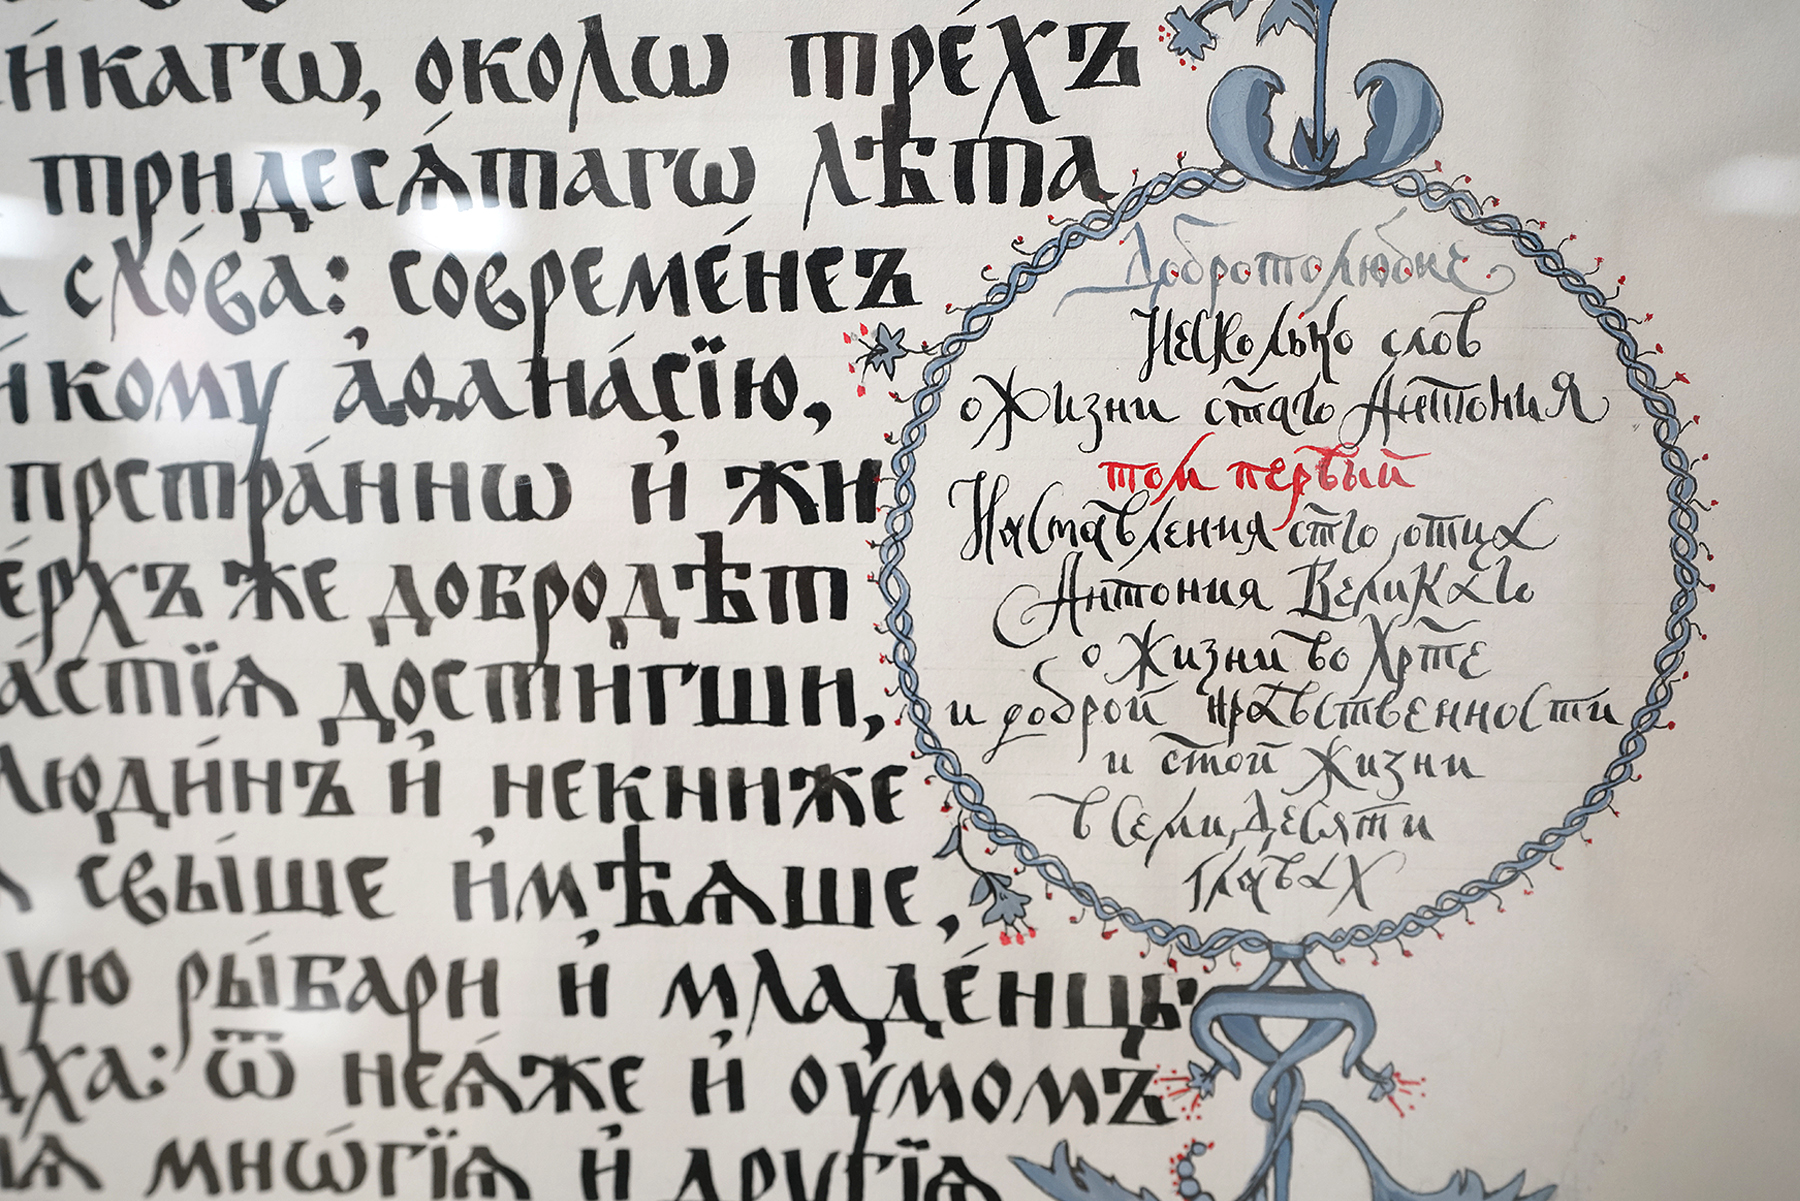 и́кагѡ, околѡ тре́хъ
тридесѧ́тагѡ лѣта
сло́ва: совреме́нєъ
и́кому а҆ѳана́сїю,
прстра́ннѡ и҆ жи
е́рхъ же добродѣт
а́стїѧ дости́гши,
люди́нъ и҆ некниже
свы́ше и҆мѣѧше,
ую ры́бари и҆ младе́нцы
дха: ѿ неѧ́же и҆ оумомъ
їѧ мнѡ́гїѧ и҆ другїѧ
Добротолюбие
Несколько слов
о Жизни стаго Антония
том первый
Наставления стго отца
Антония Великаго
о Жизни во Хрте
и доброй нравственности
и стой Жизни
в семидесяти
главах